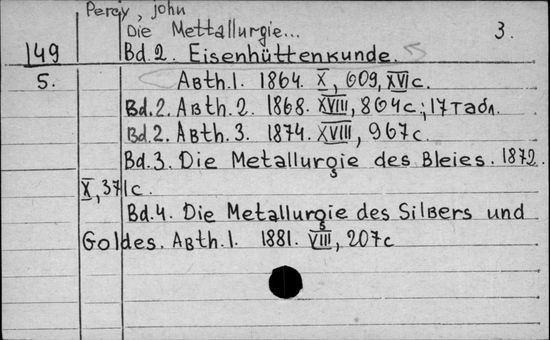 Percy, John
Die Mettallurgie... 3.
149 Bd. 2. Eisenhüttenkunde.
5. Авth. 1. 1864. X, 609, XVI с.
Bd. 2. Авth. 2. 1868. XVIII, 864 с.; 17 табл.
Bd. 2. Авth. 3. 1874. XVIII, 967 с.
Bd. 3. Die Metallurgie des Bleies. 1872.
X, 371 с.
Bd. 4. Die Metallurgie des Silвers und
Goldes. Авth. 1. 1881. VIII, 207 с